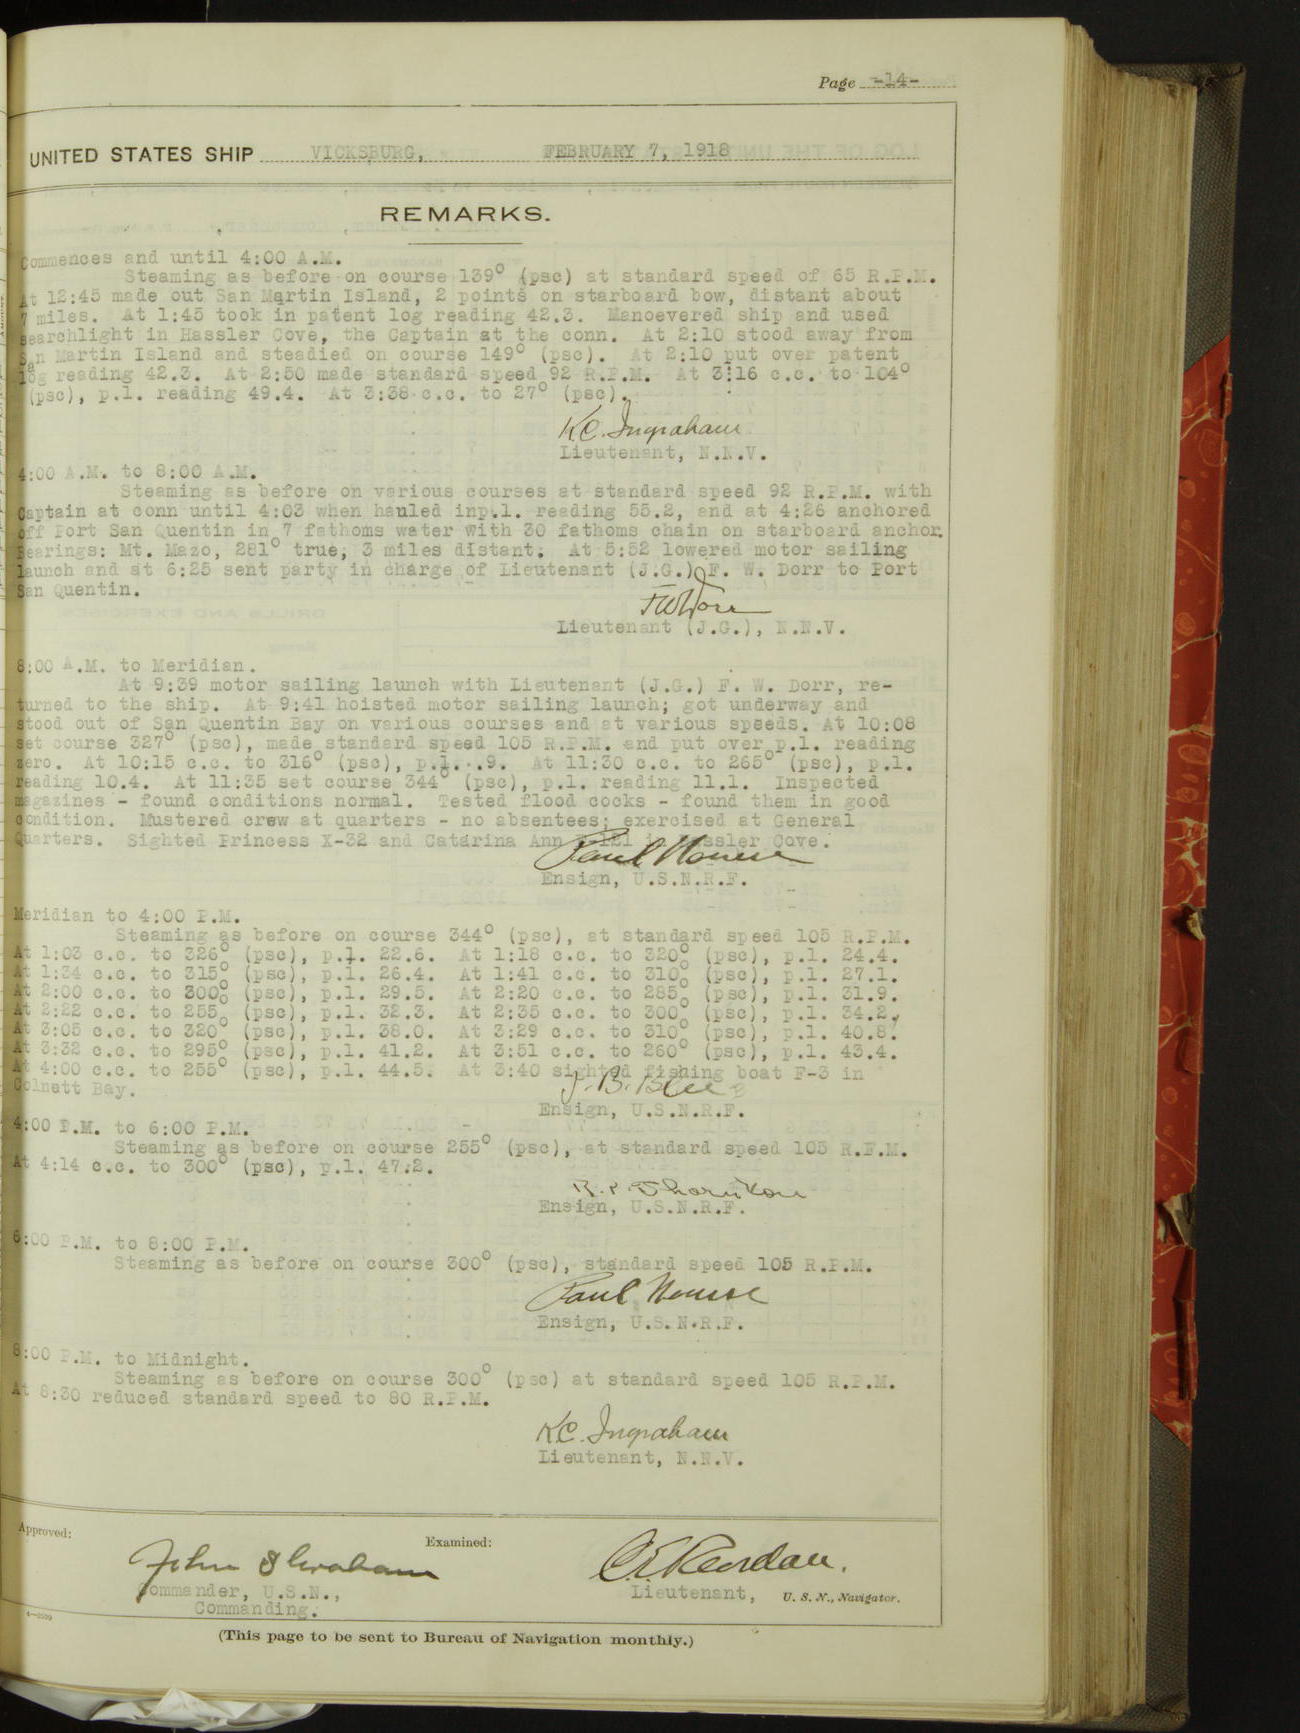 Page -14-
UNITED STATES SHIP VICKSBURG, FEBRUARY 7, 1918
REMARKS.
Commences and until 4:00 A.M.
Steaming as before on course 139° (psc) at standard speed of 65 R.P.M.
At 12:45 made out San Martin Island, 2 points on starboard bow, distant about
7 miles. At 1:45 took in patent log reading 42.3. Manoevered ship and used
searchlight in Hassler Cove, the Captain at the conn. At 2:10 stood away from
San Martin Island and steadied on course 149° (psc). At 2:10 put over patent
log reading 42.3. At 2:50 made standard speed 92 R.P.M. At 3:16 c.c. to 104°
(psc), p.l. reading 49.4. At 3:38 c.c. to 27° (psc).
K.C. Ingraham
Lieutenant, N.N.V.
4:00 A.M. to 8:00 A.M.
Steaming as before on various courses at standard speed 92 R.P.M. with
Captain at conn until 4:03 when hauled inp.l. reading 55.2, and at 4:26 anchored
off Port San Quentin in 7 fathoms water with 30 fathoms chain on starboard anchor.
Bearings: Mt. Mazo, 281° true, 3 miles distant. At 5:52 lowered motor sailing
launch and at 6:25 sent party in charge of Lieutenant (J.G.) F. W. Dorr to Port
San Quentin.
F W Dorr
Lieutenant (J.G.), N.N.V.
8:00 A.M. to Meridian.
At 9:39 motor sailing launch with Lieutenant (J.G.) F. W. Dorr, re-
turned to the ship. At 9:41 hoisted motor sailing launch; got underway and
stood out of San Quentin Bay on various courses and at various speeds. At 10:08
set course 327° (psc), made standard speed 105 R.P.M. and put over p.l. reading
zero. At 10:15 c.c. to 316° (psc), p.l. .9. At 11:30 c.c. to 265° (psc), p.l.
reading 10.4. At 11:35 set course 344° (psc), p.l. reading 11.1. Inspected
magazines - found conditions normal. Tested flood cocks - found them in good
condition. Mustered crew at quarters - no absentees; exercised at General
Quarters. Sighted Princess X-32 and Catarina Ann in Hassler Cove.
Paul
Ensign, U.S.N.R.F.
Meridian to 4:00 P.M.
Steaming as before on course 344° (psc), at standard speed 105 R.P.M.
At 1:03 c.c. to 326° (psc), p.l. 22.6. At 1:18 c.c. to 320° (psc), p.l. 24.4.
At 1:34 c.c. to 315° (psc), p.l. 26.4. At 1:41 c.c. to 310° (psc), p.l. 27.1.
At 2:00 c.c. to 300° (psc), p.l. 29.5. At 2:20 c.c. to 285° (psc), p.l. 31.9.
At 2:22 c.c. to 255° (psc), p.l. 32.3. At 2:35 c.c. to 300° (psc), p.l. 34.2.
At 3:05 c.c. to 320° (psc), p.l. 38.0. At 3:29 c.c. to 310° (psc), p.l. 40.8.
At 3:32 c.c. to 295° (psc), p.l. 41.2. At 3:51 c.c. to 260° (psc), p.l. 43.4.
At 4:00 c.c. to 255° (psc), p.l. 44.5. At 3:40 sighted fishing boat F-3 in
Colnett Bay.
Ensign, U.S.N.R.F.
4:00 P.M. to 6:00 P.M.
Steaming as before on course 255° (psc), at standard speed 105 R.P.M.
At 4:14 c.c. to 300° (psc), p.l. 47.2.
Thornton
Ensign, U.S.N.R.F.
6:00 P.M. to 8:00 P.M.
Steaming as before on course 300° (psc), standard speed 105 R.P.M.
Paul
Ensign, U.S.N.R.F.
8:00 P.M. to Midnight.
Steaming as before on course 300° (psc) at standard speed 105 R.P.M.
At 8:30 reduced standard speed to 80 R.P.M.
K.C. Ingraham
Lieutenant, N.N.V.
Approved:
Examined:
John S Graham
Commander, U.S.N.,
Commanding.
Lieutenant, U. S. N., Navigator.
(This page to be sent to Bureau of Navigation monthly.)